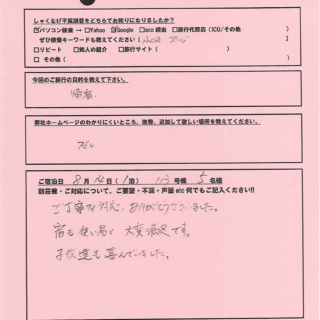 しゃくなげ平貸別荘をどちらでお知りになりましたか?
☑パソコン検索 → □Yahoo ☑Google □aco 経由 □旅行代理店 (ICU/その他 )
ぜひ検索キーワードも教えてください(
□リピート □知人の紹介 □旅行サイト( )
□ その他( )
今回のご旅行の目的を教えて下さい。
帰省
弊社ホームページのわかりにくいところ、改善、追加して欲しい場所を教えてください。
なし
ご宿泊日 8月14日(1泊) 113号棟 5名様
別荘種・ご対応について、ご要望・不満・声援 etc 何でもご記入ください!!
ご丁寧な対応、ありがとうございました。
宿も使い易く 大変満足です。
子供達も喜んでいました。